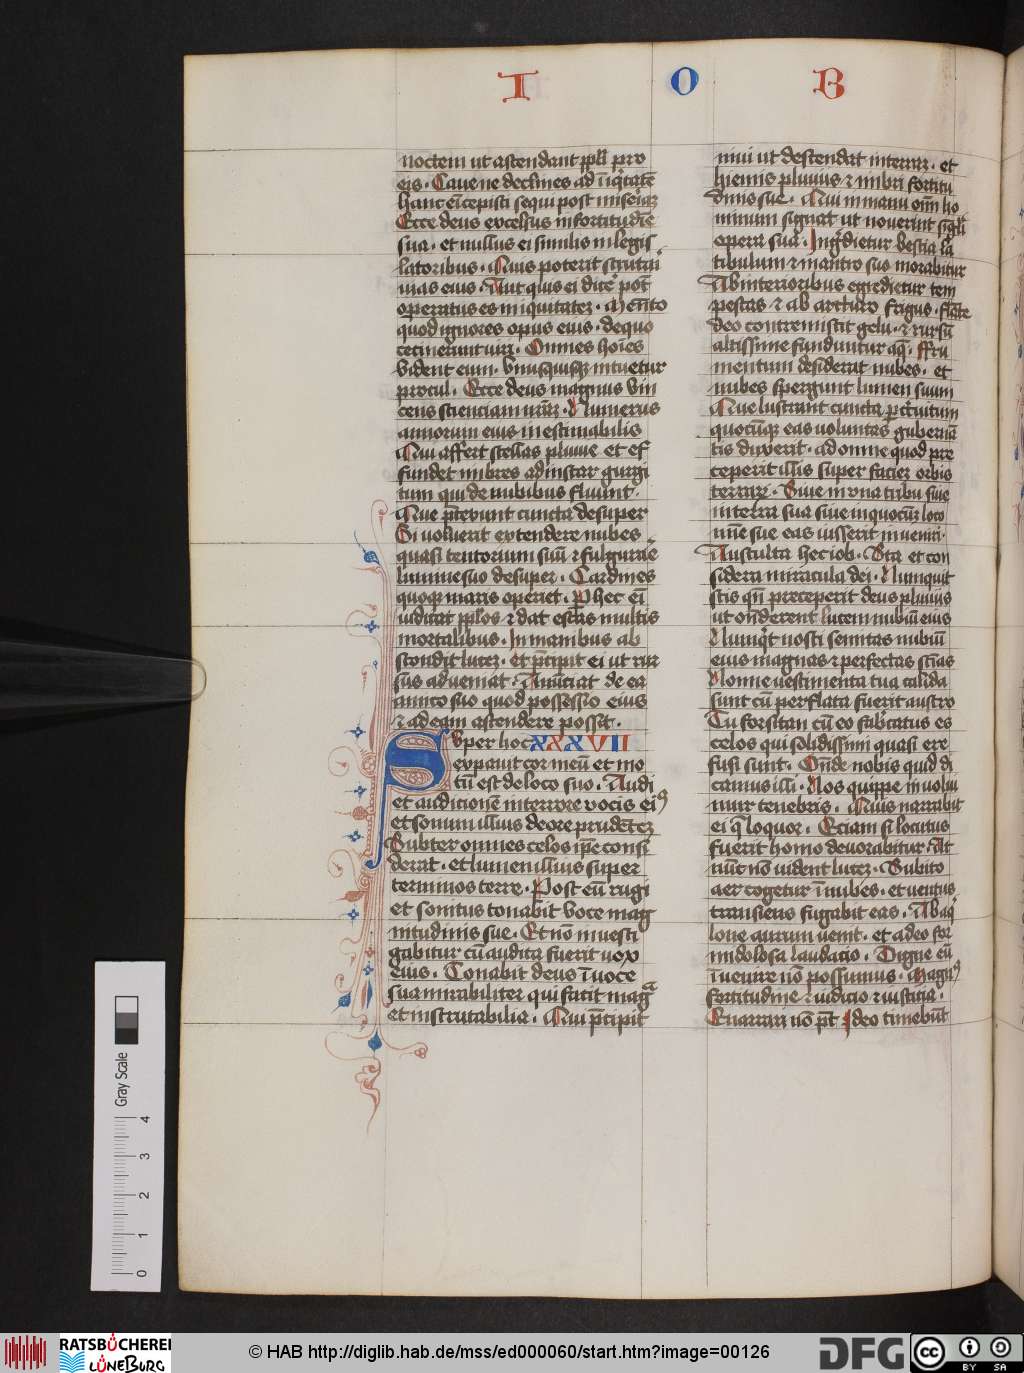 I O B
noctem ut ascendant ppłi pro
eis · Caue ne declines ad iq̃tatẽ
hanc eĩ cepisti sequi post miseriaȝ
Ecce deus excelsus in fortitudĩe
sua · et nullus ei similis in legis
latoribus · Quis poterit scrutari
uias eius · Aut quis ei dicẽ pot̃
operatus es iniquitateȝ · Memẽto
quod ignores opus eius · de quo
cecinerunt uiri · Omnes hoĩes
vident eum · Vnusquisqȝ intuetur
procul · Ecce deus magnus vin
cens scienciam nr̃am · Numerus
annorum eius inestimabilis
Qui affert stellas pluuie et ef
fundet imbres ad instar gurgi
tum qui de nubibus fluunt ·
Que p̃texunt cuncta desuper
Si voluerit extendere nubes
quasi tentorium suũ ⁊ fulgurar̃e
lumine suo desuper · Cardines
quoqȝ maris operiet · P hec eĩ
iudicat pplos ⁊ dat escas multis
mortalibus · In manibus ab
scondit luceȝ · et p̃cipit ei ut rur
sus adueniat · Anũciat de ea
amico suo quod possessio eius
⁊ ad eam ascendere possit ·
Super hoc XXXVII
expauit cor meũ et mo
tũ est de loco suo · Audi
et audicionẽ in terrore vocis eiꝰ
et sonum illius de ore prudẽceȝ
Subter omnes celos ip̃e consi
derat · et lumen illius super
terminos terre · Post eũ rugi
et sonitus tonabit voce mag
nitudinis sue · Et nõ inuesti
gabitur cũ audita fuerit uox
eius · Tonabit deus ĩ uoce
sua mirabiliter qui facit maga
et inscrutabilia · Qui p̃cipit
niui ut descendat in terraȝ · et
hiemis pluuiis ⁊ imbri fortitu
dinis sue · Qui in manu oĩm ho
minum signat ut nouerint sigłi
opera sua · Ingr̃dietur bestia la
tibulum ⁊ in antro suo morabitur
Ab interioribus egredietur tem
pestas ⁊ ab arcturo frigus · flãte
deo contremiscit gelu · ⁊ rursũ
altissime funduntur aq̃ · Fru
mentum desiderat nubes · et
nubes spergunt lumen suum
Que lustrant cuncta p̃ circuitum
quocũqȝ eas uoluntas gubernã
tis duxerit · ad omne quod pre
ceperit illis super facieȝ orbis
terrarȝ · Siue in vna tribu siue
in terra sua siue in quocũqȝ loco
mĩe sue eas iusserit inueniri ·
Ausculta hec iob · Sta et con
sidera miracula dei · Nunquit
scis qñ preceperit deus pluuiis
ut oñderent lucem nubiũ eius
Nunq̃t nosti semitas nubiũ
eius magnas ⁊ perfectas scĩas
Nonne uestimenta tua calida
sunt cũ perflata fuerit austro
Tu forsitan cũ eo fabricatus es
celos qui solidissimi quasi ere
fusi sunt · Oñde nobis quid di
camus illi · Nos quippe inuolui
mur tenebris · Quis narrabit
ei q̃ loquor · Eciam si locutus
fuerit homo deuorabitur · At
nũc nõ uident luceȝ · Subito
aer cogetur ĩ nubes · et uentus
transiens fugabit eas · Ab aq̃
lone aurum uenit · et a deo for
midolosa laudacio · Digne eũ
ĩuenire nõ possumus · Magnꝰ
fortitudine ⁊ iudicio ⁊ iusticia ·
Enarrari nõ p̃t Ideo timebũt
Gray Scale
0 1 2 3 4
RATSBÜCHEREI
LÜNEBURG
© HAB http://diglib.hab.de/mss/ed000060/start.htm?image=00126
DFG
cc BY SA